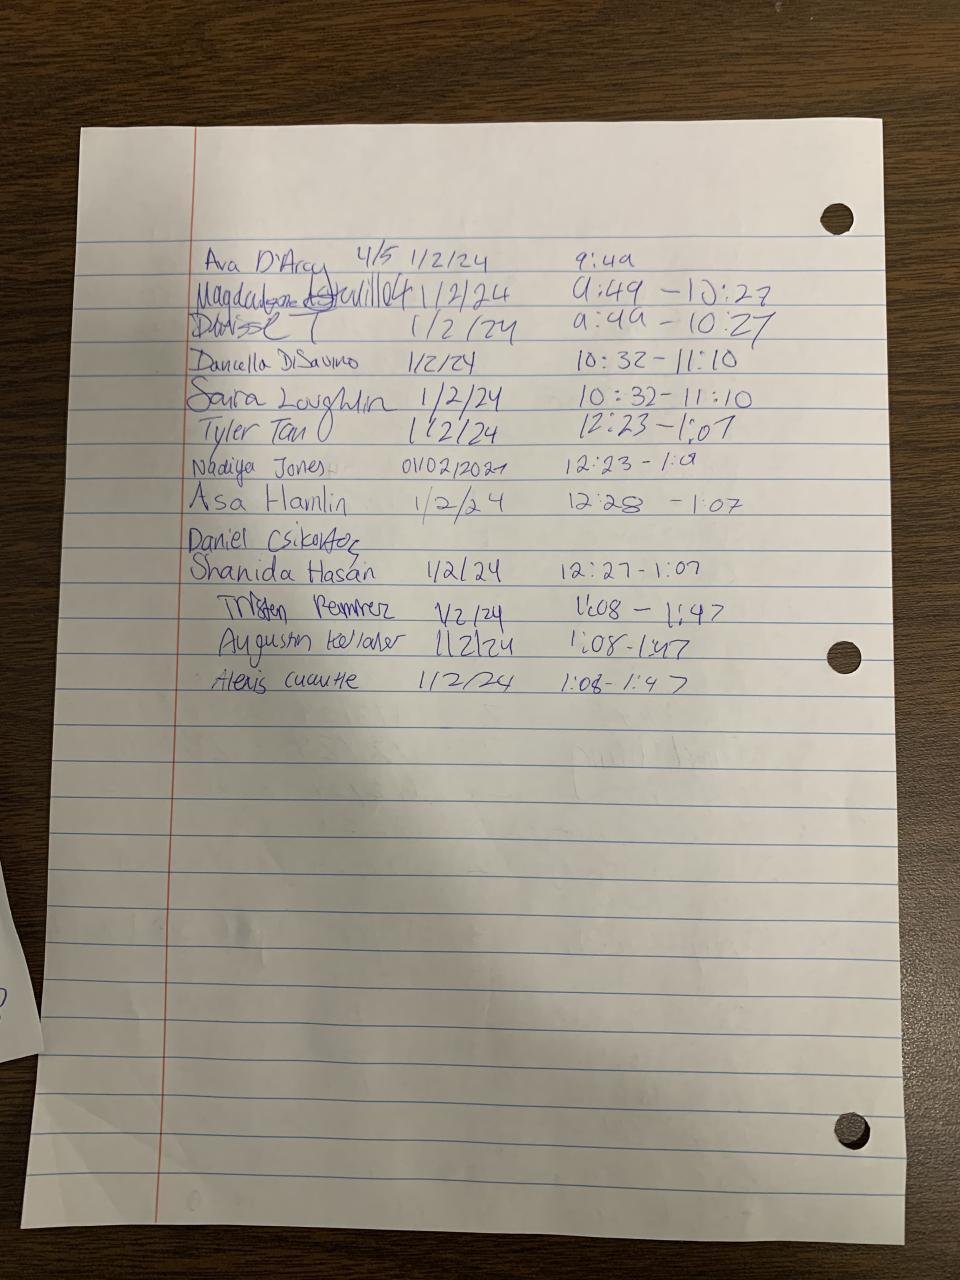 Ava D'Arcy 4/5 1/2/24 9:49
4 1/2/24 9:49 - 10:27
T 1/2/24 9:49 - 10:27
Daniella DiSavino 1/2/24 10:32-11:10
Saira Loughlin 1/2/24 10:32-11:10
Tyler Tan 1/2/24 12:23-1:07
Nadiya Jones 01/02/2024 12:23-1:
Asa Hamlin 1/2/24 12:28 - 1:07
Daniel
Shanida Hasan 1/2/24 12:27-1:07
Tristen Ramirez 1/2/24 1:08 - 1:47
Augustin 1/2/24 1:08-1:47
Alexis Cuautle 1/2/24 1:08-1:47